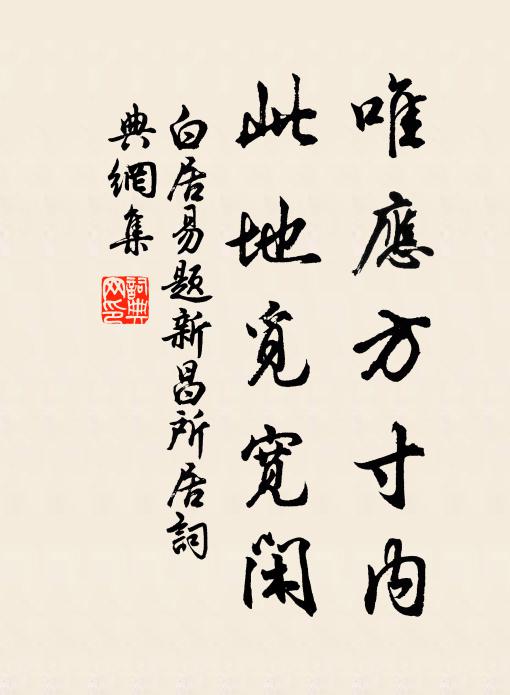 唯應方寸內
此地覓寬閑
白居易題新昌所居詞
典網集
詞典
网印